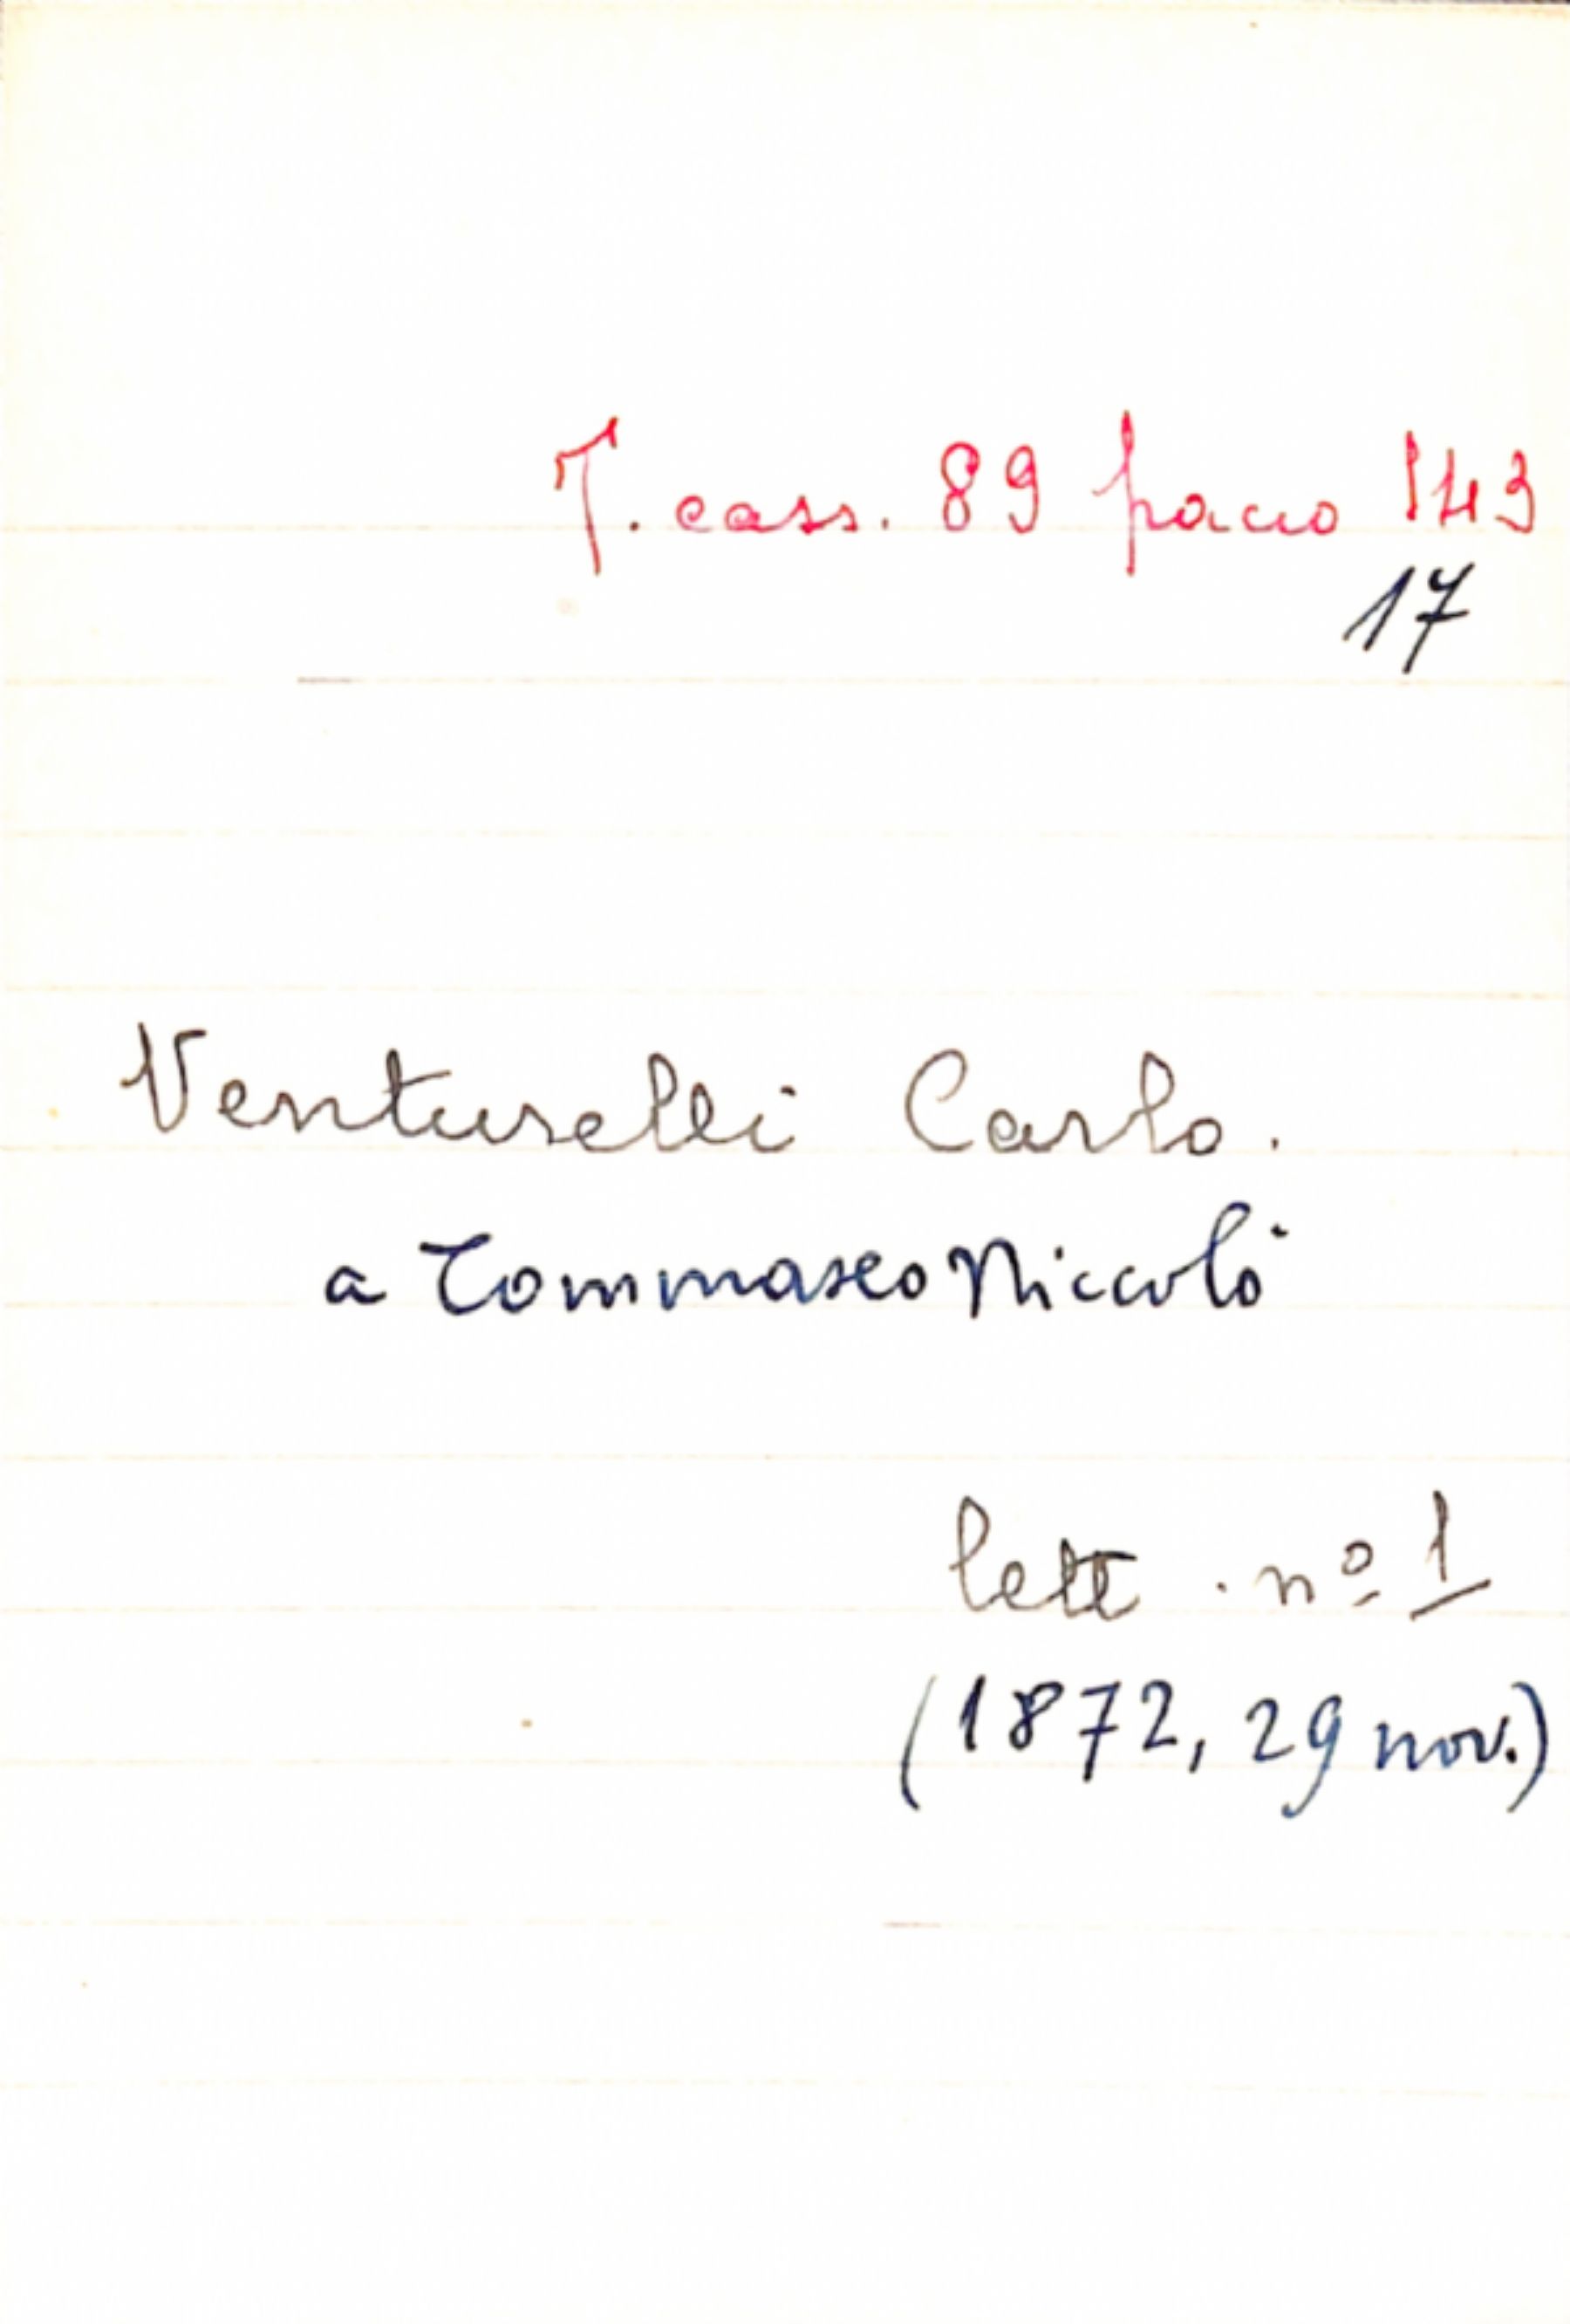 T. cass. 89 pacco 143
17
Venturelli Carlo.
a Tommaseo Niccolò
lett. nº 1
(1872, 29 nov.)